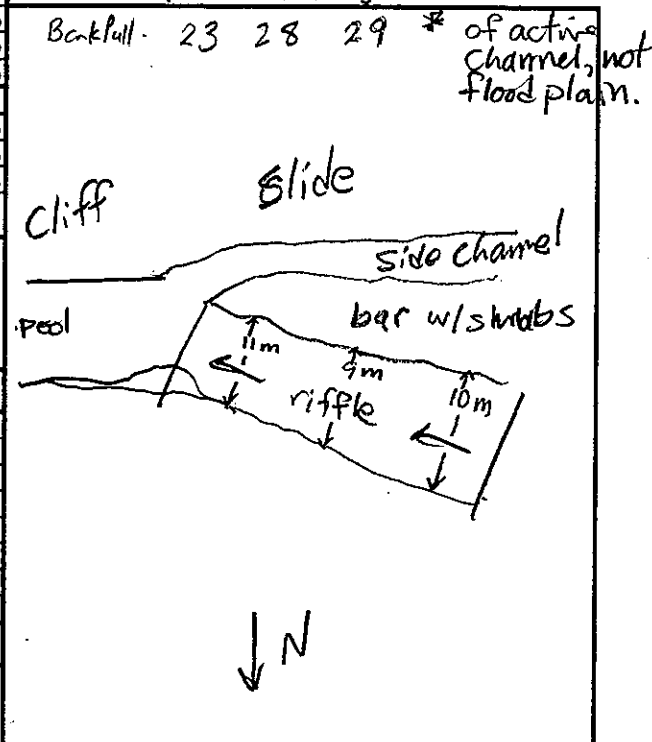 Bankfull. 23 28 29 * of active
channel, not
flood plain.
Slide
Cliff
side channel
pool
bar w/ shrubs
11m
9m
10m
riffle
N